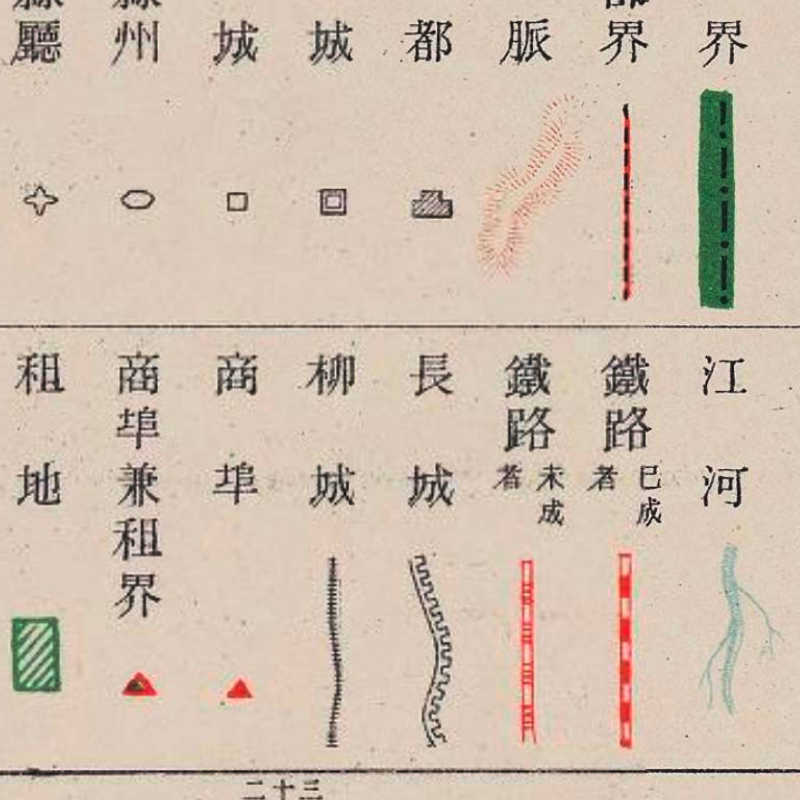 界
部界
脈
都
城
城
縣州
縣廳
江河
鐵路已成者
鐵路未成者
長城
柳城
商埠
商埠兼租界
租地
三十二